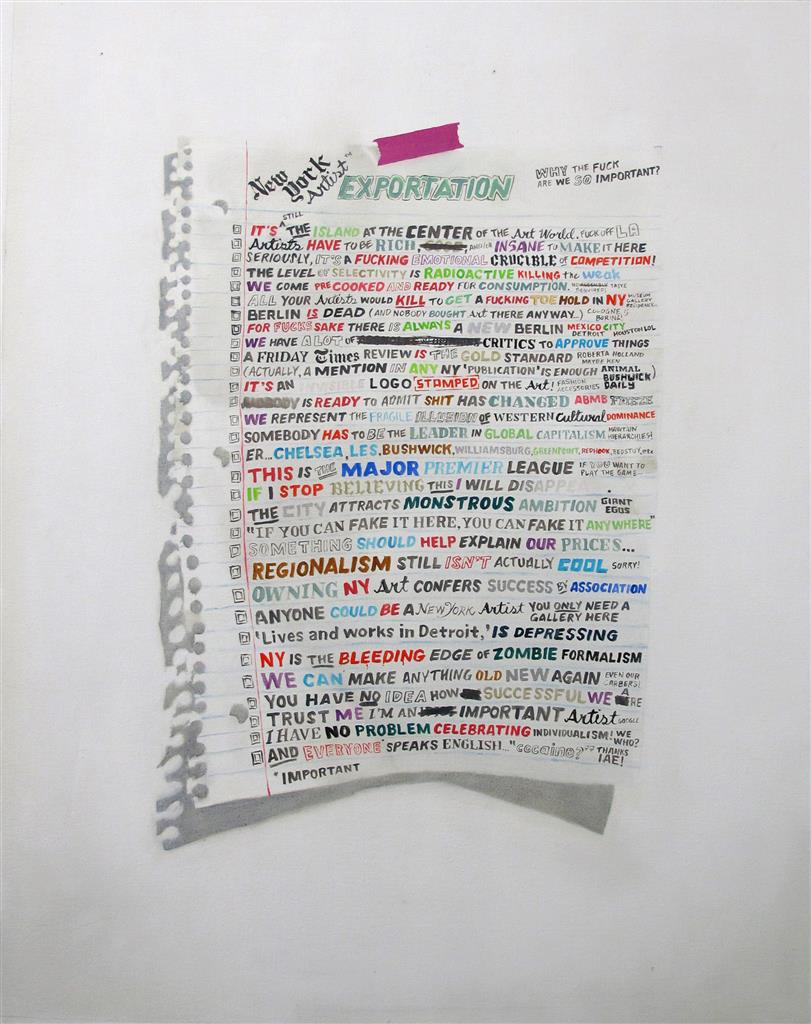 New York Artist™ EXPORTATION WHY THE FUCK ARE WE SO IMPORTANT?
IT'S STILL THE ISLAND AT THE CENTER OF THE Art World, FUCK OFF LA
Artists HAVE TO BE RICH, INSANE TO MAKE IT HERE
SERIOUSLY, IT'S A FUCKING EMOTIONAL CRUCIBLE OF COMPETITION!
THE LEVEL OF SELECTIVITY IS RADIOACTIVE KILLING the weak
WE COME PRECOOKED AND READY FOR CONSUMPTION. TASTE
ALL YOUR Artists WOULD KILL TO GET A FUCKING TOE HOLD IN NY MUSEUM GALLERY
BERLIN IS DEAD (AND NOBODY BOUGHT Art THERE ANYWAY...) COLOGNE IS
FOR FUCKS SAKE THERE IS ALWAYS A NEW BERLIN MEXICO CITY DETROIT HOUSTON LOL
WE HAVE A LOT OF CRITICS TO APPROVE THINGS
A FRIDAY Times REVIEW IS THE GOLD STANDARD ROBERTA HOLLAND MAYBE KEN
(ACTUALLY, A MENTION IN ANY NY 'PUBLICATION' IS ENOUGH ANIMAL BUSHWICK DAILY)
IT'S AN INVISIBLE LOGO STAMPED ON THE Art! FASHION ACCESSORIES
NOBODY IS READY TO ADMIT SHIT HAS CHANGED ABMB FRIEZE
WE REPRESENT THE FRAGILE ILLUSION OF WESTERN Cultural DOMINANCE
SOMEBODY HAS TO BE THE LEADER IN GLOBAL CAPITALISM HIERARCHIES!
ER... CHELSEA, LES, BUSHWICK, WILLIAMSBURG, GREENPOINT, REDHOOK, BEDSTUY, etc
THIS IS THE MAJOR PREMIER LEAGUE IF YOU WANT TO PLAY THE GAME...
IF I STOP BELIEVING THIS I WILL DISAPPE
THE CITY ATTRACTS MONSTROUS AMBITION GIANT EGOS
"IF YOU CAN FAKE IT HERE, YOU CAN FAKE IT ANYWHERE"
SOMETHING SHOULD HELP EXPLAIN OUR PRICES...
REGIONALISM STILL ISN'T ACTUALLY COOL SORRY!
OWNING NY Art CONFERS SUCCESS BY ASSOCIATION
ANYONE COULD BE A NEW YORK Artist YOU ONLY NEED A GALLERY HERE
'Lives and works in Detroit,' IS DEPRESSING
NY IS THE BLEEDING EDGE OF ZOMBIE FORMALISM
WE CAN MAKE ANYTHING OLD NEW AGAIN EVEN OUR
YOU HAVE NO IDEA HOW SUCCESSFUL WE ARE
TRUST ME I'M AN IMPORTANT Artist GOOGLE
I HAVE NO PROBLEM CELEBRATING INDIVIDUALISM! WE WHO?
AND EVERYONE* SPEAKS ENGLISH... "cocaine?" THANKS IAE!
*IMPORTANT